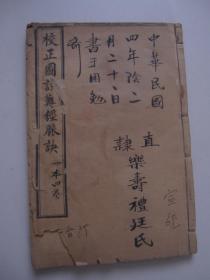 中華民國
四年陰二
月二十八日
書于困勉
齋
直隸
樂壽禮廷氏
校正圖註難經脈訣 一本四卷